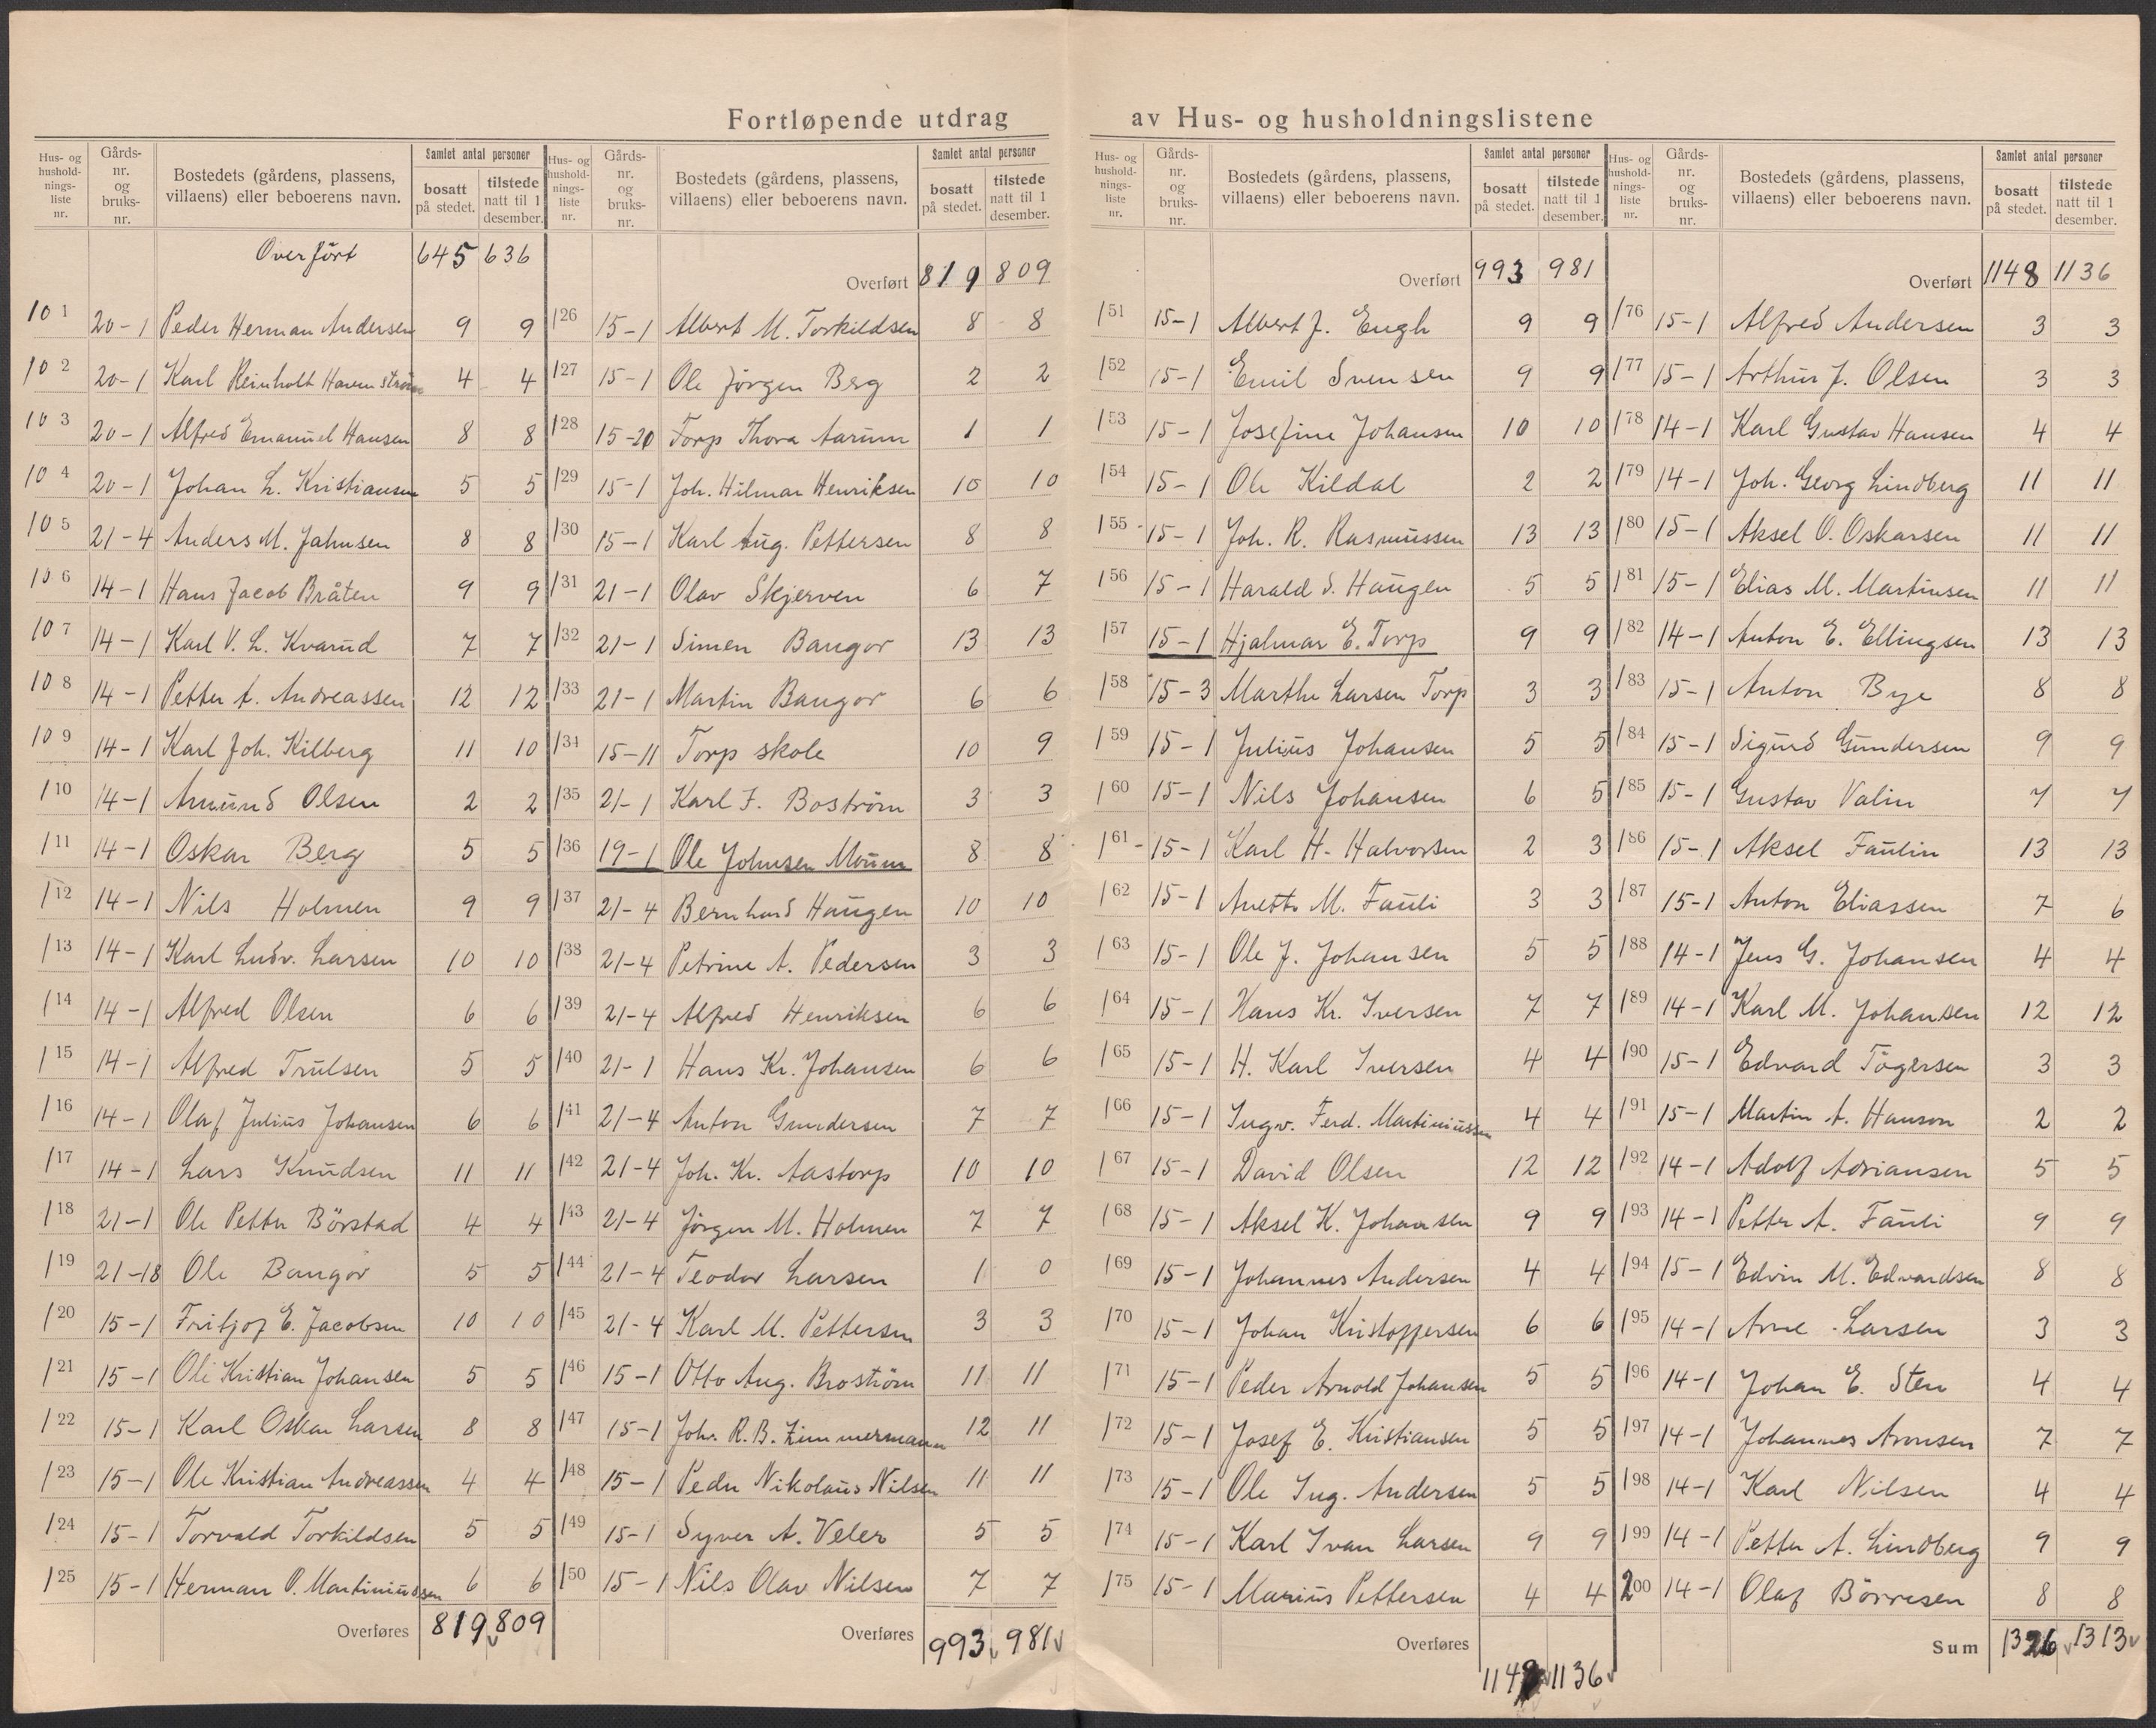 Fortløpende utdrag av Hus- og husholdningslistene
Hus- og husholdningsliste nr. | Gårds-nr. og bruks-nr. | Bostedets (gårdens, plassens, villaens) eller beboerens navn. | Samlet antal personer bosatt på stedet. | tilstede natt til 1 desember.
Overført 645 636
101 20-1 Peder Herman Andersen 9 9
102 20-1 Karl Reinholt Havenström 4 4
103 20-1 Alfred Emanuel Hansen 8 8
104 20-1 Johan L. Kristiansen 5 5
105 21-4 Anders M. Jahnsen 8 8
106 14-1 Hans Jacob Bråten 9 9
107 14-1 Karl V. L. Kvarud 7 7
108 14-1 Petter A. Andreassen 12 12
109 14-1 Karl Joh. Kilberg 11 10
110 14-1 Amund Olsen 2 2
111 14-1 Oskar Berg 5 5
112 14-1 Nils Holmen 9 9
113 14-1 Karl Ludv. Larsen 10 10
114 14-1 Alfred Olsen 6 6
115 14-1 Alfred Trulsen 5 5
116 14-1 Olaf Julius Johansen 6 6
117 14-1 Lars Knudsen 11 11
118 21-1 Ole Petter Börstad 4 4
119 21-18 Ole Bangor 5 5
120 15-1 Fritjof E. Jacobsen 10 10
121 15-1 Ole Kristian Johansen 5 5
122 15-1 Karl Oskar Larsen 8 8
123 15-1 Ole Kristian Andreassen 4 4
124 15-1 Torvald Torkildsen 5 5
125 15-1 Herman O. Martiniussen 6 6
Overføres 819 809
Hus- og husholdningsliste nr. | Gårds-nr. og bruks-nr. | Bostedets (gårdens, plassens, villaens) eller beboerens navn. | Samlet antal personer bosatt på stedet. | tilstede natt til 1 desember.
Overført 819 809
126 15-1 Albert M. Torkildsen 8 8
127 15-1 Ole Jörgen Berg 2 2
128 15-20 Torp Thora Aarum 1 1
129 15-1 Joh. Hilmar Henriksen 10 10
130 15-1 Karl Aug. Pettersen 8 8
131 21-1 Olav Skjerven 6 7
132 21-1 Simen Bangor 13 13
133 21-1 Martin Bangor 6 6
134 15-11 Torp skole 10 9
135 21-1 Karl F. Boström 3 3
136 19-1 Ole Johnsen Moum 8 8
137 21-4 Bernhard Haugen 10 10
138 21-4 Petrine A. Pedersen 3 3
139 21-4 Alfred Henriksen 6 6
140 21-1 Hans Kr. Johansen 6 6
141 21-4 Anton Gundersen 7 7
142 21-4 Joh. Kr. Aastorp 10 10
143 21-4 Jörgen M. Holmen 7 7
144 21-4 Teodor Larsen 1 0
145 21-4 Karl M. Pettersen 3 3
146 15-1 Otto Aug. Broström 11 11
147 15-1 Joh. R. B. Zimmermann 12 11
148 15-1 Peder Nikolaus Nilsen 11 11
149 15-1 Syver A. Veler 5 5
150 15-1 Nils Olav Nilsen 7 7
Overføres 993 981
Hus- og husholdningsliste nr. | Gårds-nr. og bruks-nr. | Bostedets (gårdens, plassens, villaens) eller beboerens navn. | Samlet antal personer bosatt på stedet. | tilstede natt til 1 desember.
Overført 993 981
151 15-1 Albert J. Engh 9 9
152 15-1 Emil Svensen 9 9
153 15-1 Josefine Johansen 10 10
154 15-1 Ole Kildal 2 2
155 15-1 Joh. R. Rasmussen 13 13
156 15-1 Harald S. Haugen 5 5
157 15-1 Hjalmar E. Torp 9 9
158 15-3 Marthe Larsen Torp 3 3
159 15-1 Julius Johansen 5 5
160 15-1 Nils Johansen 6 5
161 15-1 Karl H. Halvorsen 2 3
162 15-1 Anette M. Fauli 3 3
163 15-1 Ole J. Johansen 5 5
164 15-1 Hans Kr. Iversen 7 7
165 15-1 H. Karl Iversen 4 4
166 15-1 Ingv. Ferd. Martiniussen 4 4
167 15-1 David Olsen 12 12
168 15-1 Aksel K. Johansen 9 9
169 15-1 Johannes Andersen 4 4
170 15-1 Johan Kristoffersen 6 6
171 15-1 Peder Arnold Johansen 5 5
172 15-1 Josef E. Kristiansen 5 5
173 15-1 Ole Ing. Andersen 5 5
174 15-1 Karl Ivan Larsen 9 9
175 15-1 Marius Pettersen 4 4
Overføres 1148 1136
Hus- og husholdningsliste nr. | Gårds-nr. og bruks-nr. | Bostedets (gårdens, plassens, villaens) eller beboerens navn. | Samlet antal personer bosatt på stedet. | tilstede natt til 1 desember.
Overført 1148 1136
176 15-1 Alfred Andersen 3 3
177 15-1 Arthur J. Olsen 3 3
178 14-1 Karl Gustav Hansen 4 4
179 14-1 Joh. Georg Lindberg 11 11
180 15-1 Aksel O. Oskarsen 11 11
181 15-1 Elias M. Martinsen 11 11
182 14-1 Anton E. Ellingsen 13 13
183 15-1 Anton Bye 8 8
184 15-1 Sigurd Gundersen 9 9
185 15-1 Gustav Valin 7 7
186 15-1 Aksel Faulin 13 13
187 15-1 Anton Eliassen 7 6
188 14-1 Jens G. Johansen 4 4
189 14-1 Karl M. Johansen 12 12
190 15-1 Edvard Tögersen 3 3
191 15-1 Martin A. Hanson 2 2
192 14-1 Adolf Adriansen 5 5
193 14-1 Petter A. Fauli 9 9
194 15-1 Edvin M. Edvardsen 8 8
195 14-1 Arne Larsen 3 3
196 14-1 Johan E. Sten 4 4
197 14-1 Johannes Aronsen 7 7
198 14-1 Karl Nilsen 4 4
199 14-1 Petter A. Lindberg 9 9
200 14-1 Olaf Börresen 8 8
Sum 1326 1313